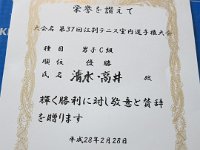 栄誉を讃えて
大会名 第37回江別テニス室内選手権大会
種目 男子C級
順位 優勝
氏名 清水・高井 殿
輝く勝利に対し敬意と賛辞
を贈ります
平成28年2月28日